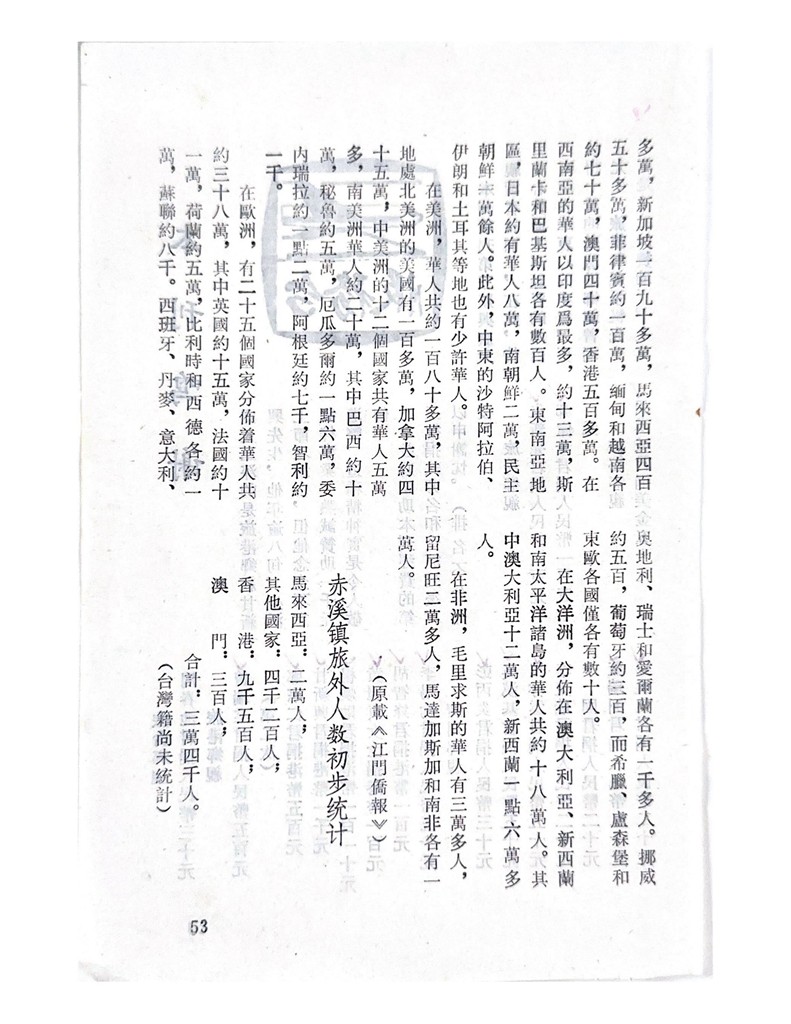 多萬，新加坡一百九十多萬，馬來西亞四百
五十多萬，菲律賓約一百萬，緬甸和越南各
約七十萬，澳門四十萬，香港五百多萬。在
西南亞的華人以印度爲最多，約十三萬，斯
里蘭卡和巴基斯坦各有數百人。東南亞地
區，日本約有華人八萬，南朝鮮二萬，民主
朝鮮萬餘人。此外，中東的沙特阿拉伯、
伊朗和土耳其等地也有少許華人。
在美洲，華人共約一百八十多萬，其中
地處北美洲的美國有一百多萬，加拿大約四
十五萬，中美洲的十二個國家共有華人五萬
多，南美洲華人約二十萬，其中巴西約十
萬，秘魯約五萬，厄瓜多爾約一點六萬，委
內瑞拉約一點二萬，阿根廷約七千，智利約
一千。
在歐洲，有二十五個國家分佈着華人共
約三十八萬，其中英國約十五萬，法國約十
一萬，荷蘭約五萬，比利時和西德各約一
萬，蘇聯約八千。西班牙、丹麥、意大利、
奥地利、瑞士和愛爾蘭各有一千多人。挪威
約五百，葡萄牙約三百，而希臘、盧森堡和
東歐各國僅各有數十人。
在大洋洲，分佈在澳大利亞、新西蘭
和南太平洋諸島的華人共約十八萬人。其
中澳大利亞十二萬人，新西蘭一點六萬多
人。
在非洲，毛里求斯的華人有三萬多人，
留尼旺二萬多人，馬達加斯加和南非各有一
萬人。
（原載《江門僑報》）
赤溪镇旅外人数初步统计
馬來西亞：二萬人；
其他國家：四千二百人；
香港：九千五百人；
澳門：三百人；
合計：三萬四千人。
（台灣籍尚未統計）
53